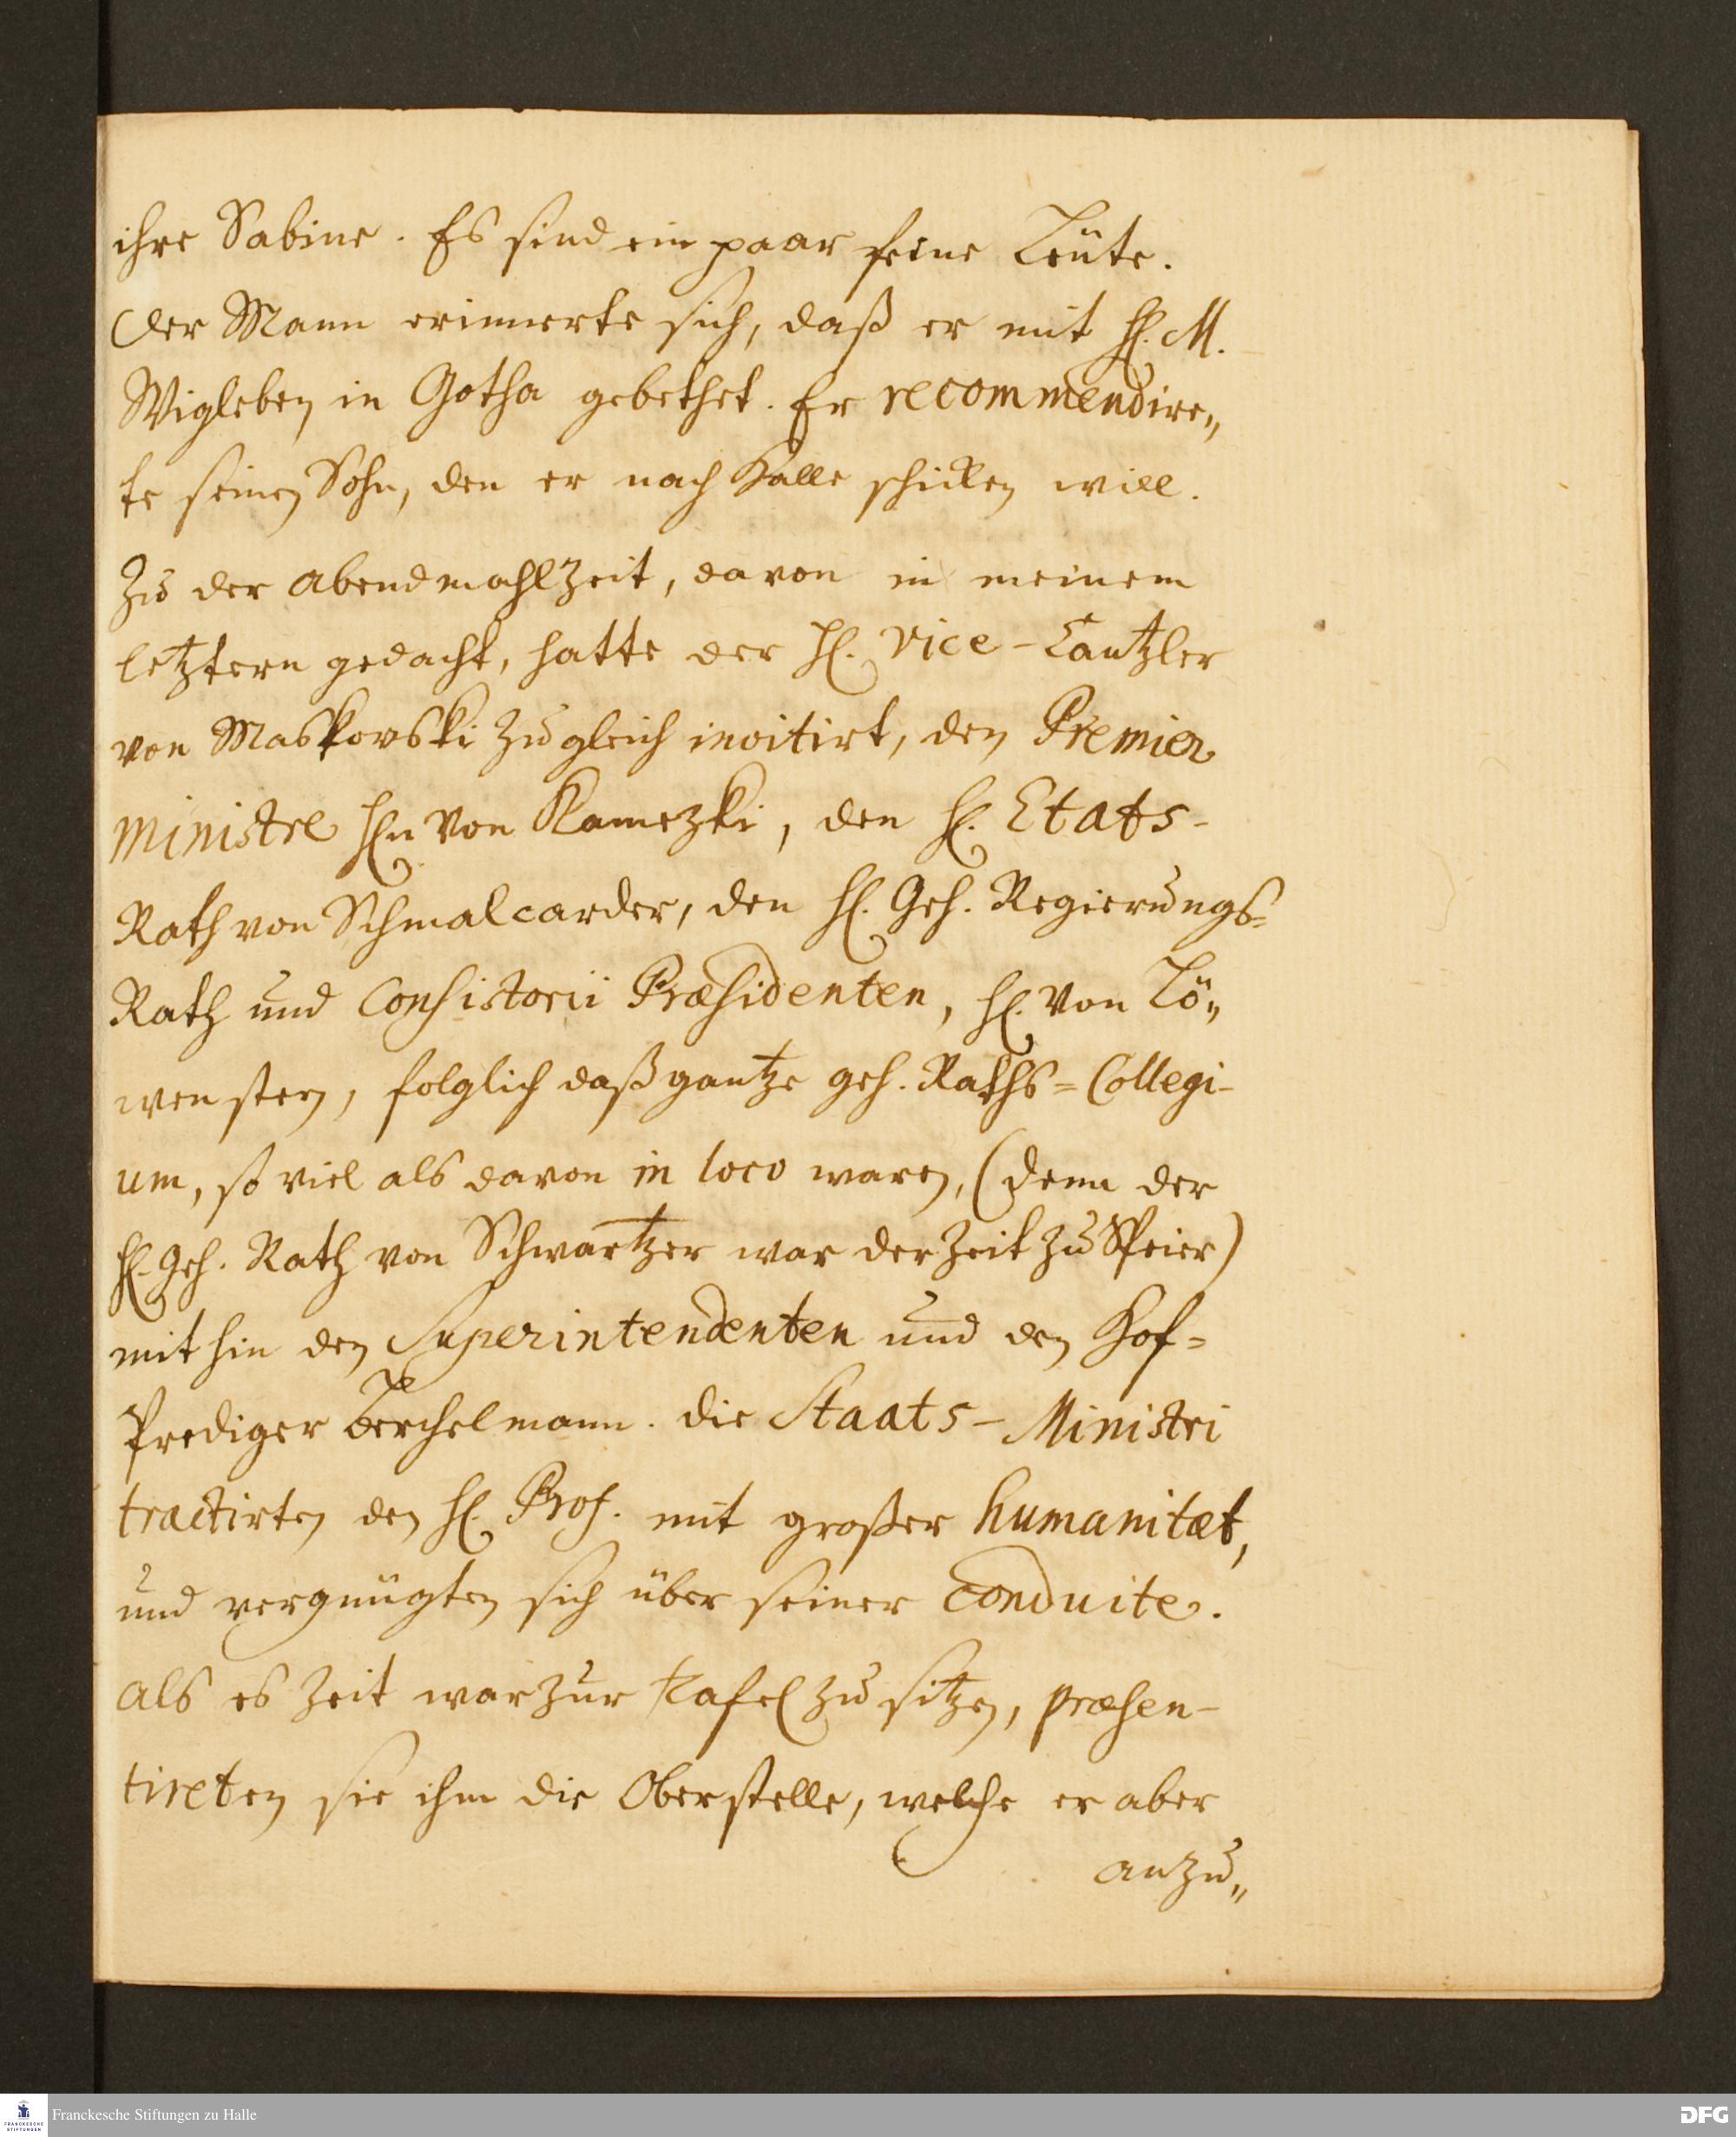 ihre Sabine. Es sind ein paar feine Leüte.
Der Mann erinnerte sich, daß er mit H. M.
Wigleben in Gotha gebethet. Er recommendire„
te seinen Sohn, den er nach Halle schicken will.
Zu der Abendmahlzeit, davon in meinem
letztern gedacht, hatte der H. Vice-Cantzler
von Maskovski zugleich invitirt, den Premier
Ministre Hn von Kamezki, den H. Etats-
Rath von Schmalcarder, den H. Geh. Regierungs=
Rath und Consistorii Præsidenten, H. von Lö„
wenstern, folglich daß gantze geh. Raths=Collegi-
um, so viel als davon in loco waren, (denn der
H. Geh. Rath von Schwartzer war der Zeit zu Speier)
mithin den Superintendenten und den Hof=
Prediger Berchelmann. Die Staats-Ministri
tractirten den H. Prof. mit großer humanitæt,
und vergnügten sich über seiner Conduite.
Als es Zeit war zur Tafel zu sitzen, præsen-
tireten sie ihm die Oberstelle, welche er aber
anzu„
Franckesche Stiftungen zu Halle
DFG